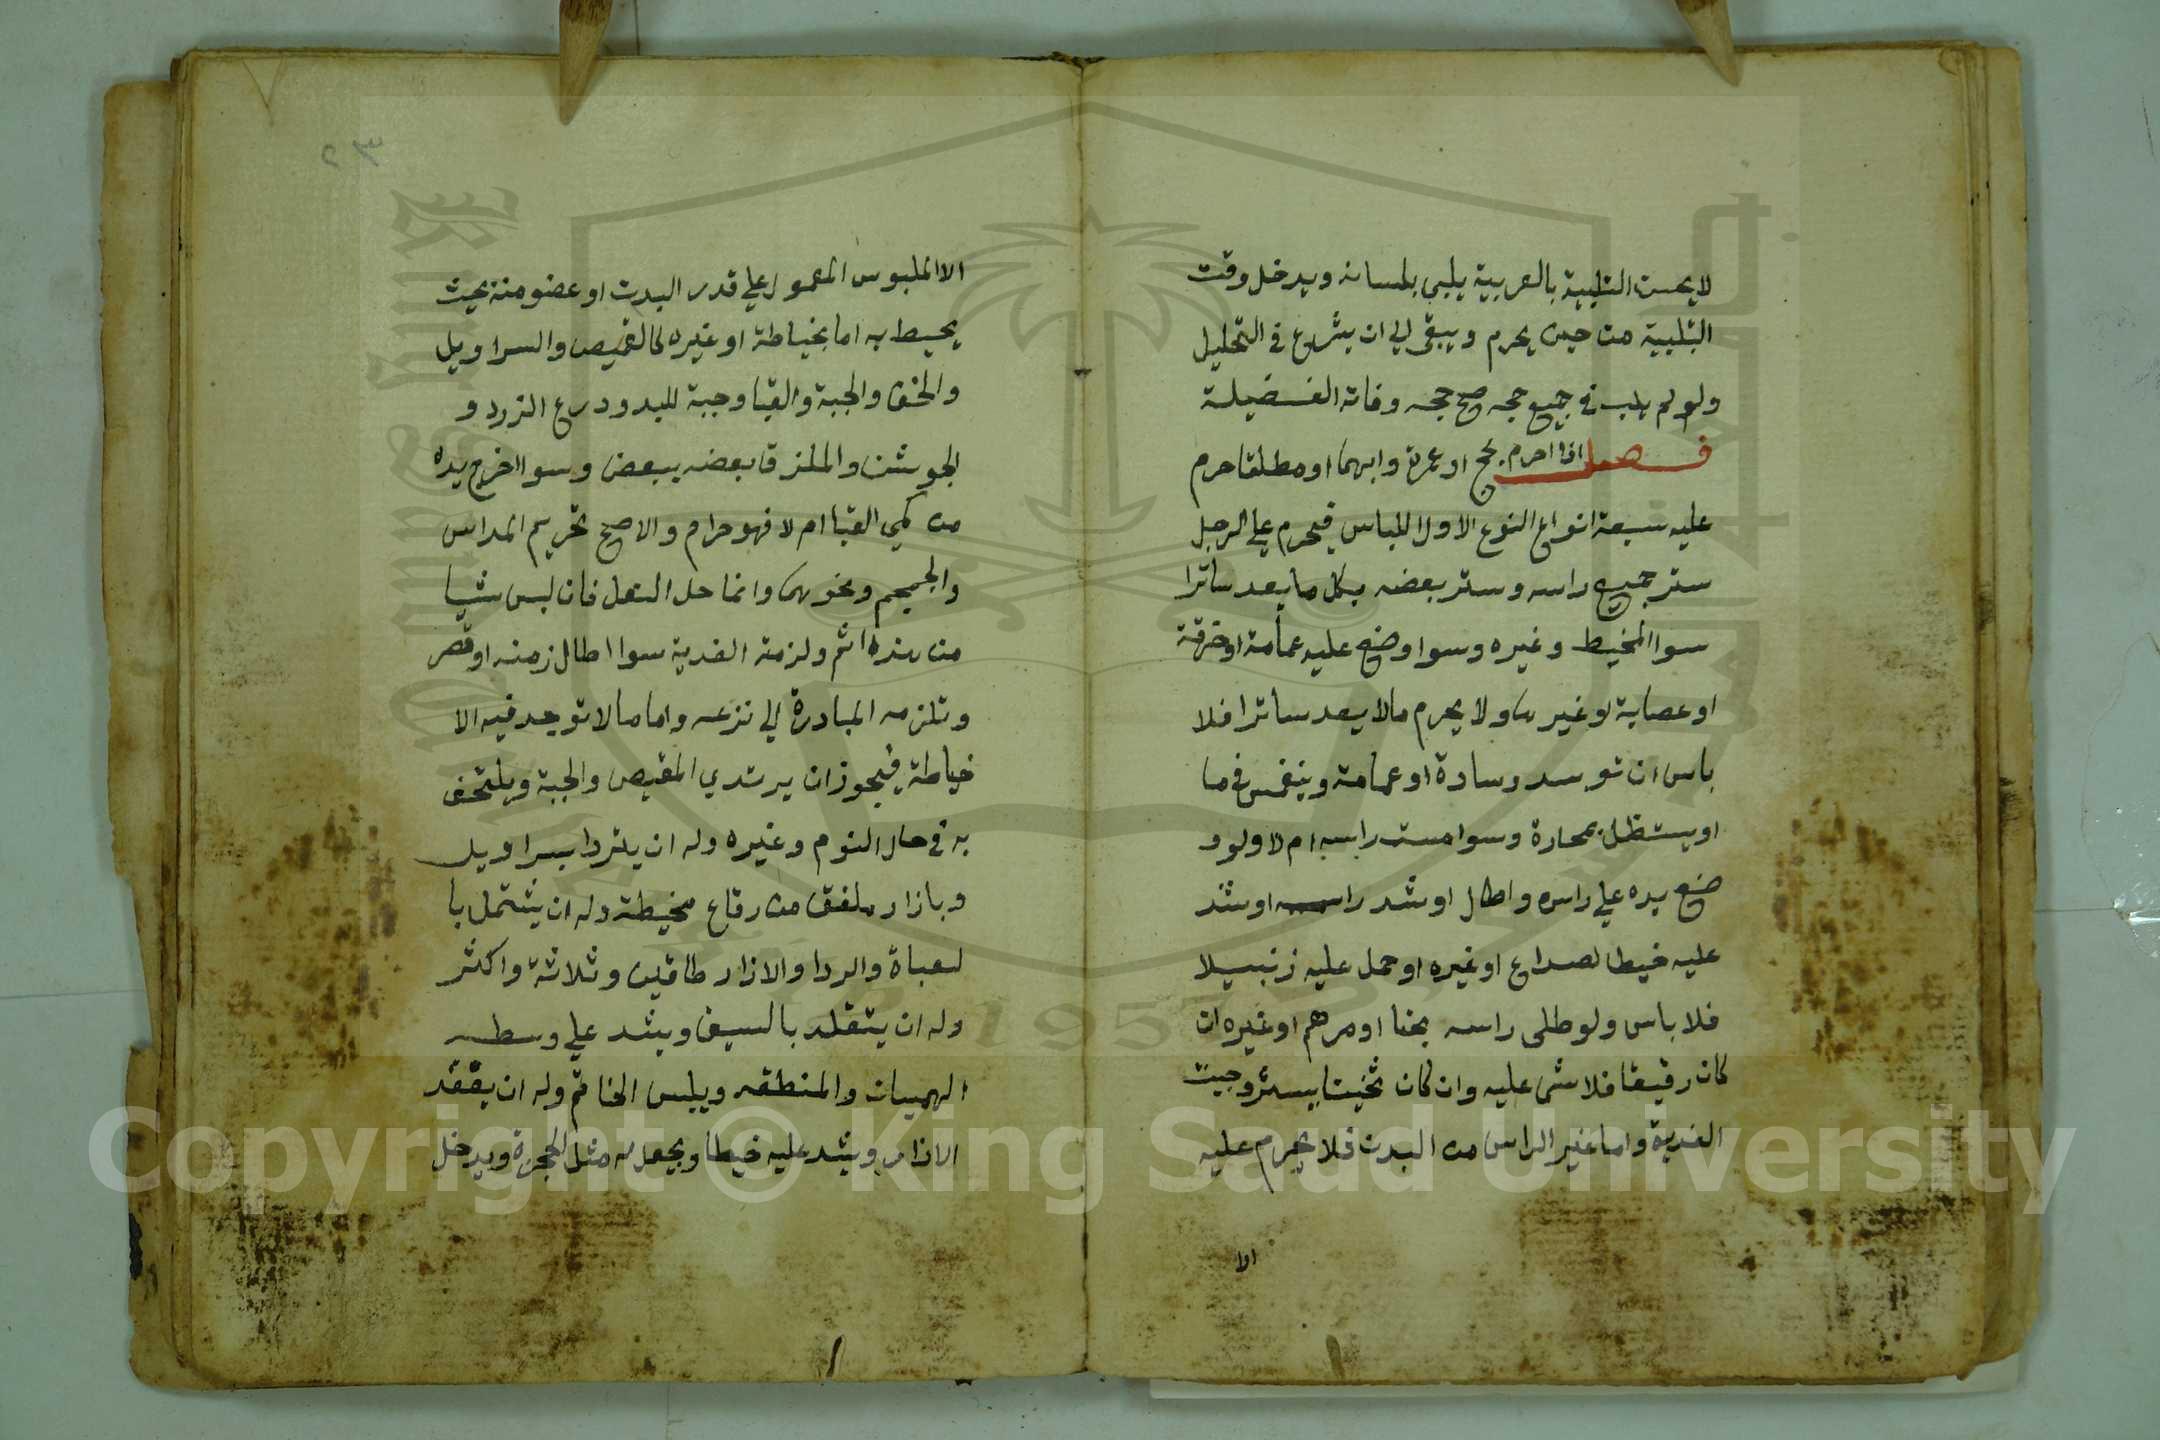 لا يحسن التلبية بالعربية يلبي بلسانه ويدخل وقت
التلبية من حين يحرم ويبقى الي ان يشرع في التحليل
ولو لم يلب في جميع حجه صح حجه وفاته الفضيلة
فصل اذا احرم بحج او عمرة وابهما او مطلقا حرم
عليه سبعة انواع النوع الاول اللباس فيحرم علي الرجل
ستر جميع راسه وستر بعضه بكل ما يعد ساترا
سوا المخيط وغيره وسوا وضع عليه عمامة او خرقة
او عصابة او غيرها ولا يحرم ما لا يعد ساترا فلا
باس ان توسد وسادة او عمامة وينغمس في ما
او يستظل بمحارة وسوا مست راسه ام لا ولو و
ضع يده علي راسه واطال او شد راسه او شد
عليه خيطا لصداع او غيره او حمل عليه زنبيلا
فلا باس ولو طلى راسه بحنا او مرهم او غيره ان
كان رقيقا فلا شي عليه وان كان ثخينا يستر وجبت
الفدية واما غير الراس من البدن فلا يحرم عليه
الا
٢٣
الا الملبوس المعمول علي قدر البدن او عضو منه بحيث
يحيط به اما بخياطة او غيره كالقميص والسراويل
والخف والجبة والقبا وجبة اللبد ودرع الزرد و
الجوشن والملزق بعضه ببعض وسوا اخرج يده
من كمي القبا ام لا فهو حرام والاصح تحريم المداس
والجمجم ونحوهما وانما حل النعل فان لبس شيا
من هذه اثم ولزمته الفدية سوا اطال زمنه او قصر
وتلزمه المبادرة الي نزعه واما ما لا توجد فيه الا
خياطة فيجوز ان يرتدي القميص والجبة ويلتحف
به في حال النوم وغيره وله ان يتردا بسراويل
وبازار ملفق من رقاع مخيطة وله ان يشتمل با
لعباة والردا والازار طاقين وثلاثة واكثر
وله ان يتقلد بالسيف ويشد علي وسطه
الهميان والمنطقه ويلبس الخاتم وله ان يعقد
الازار ويشد عليه خيطا ويجعل له مثل الحجزة ويدخل
Copyright © King Saud University
1957